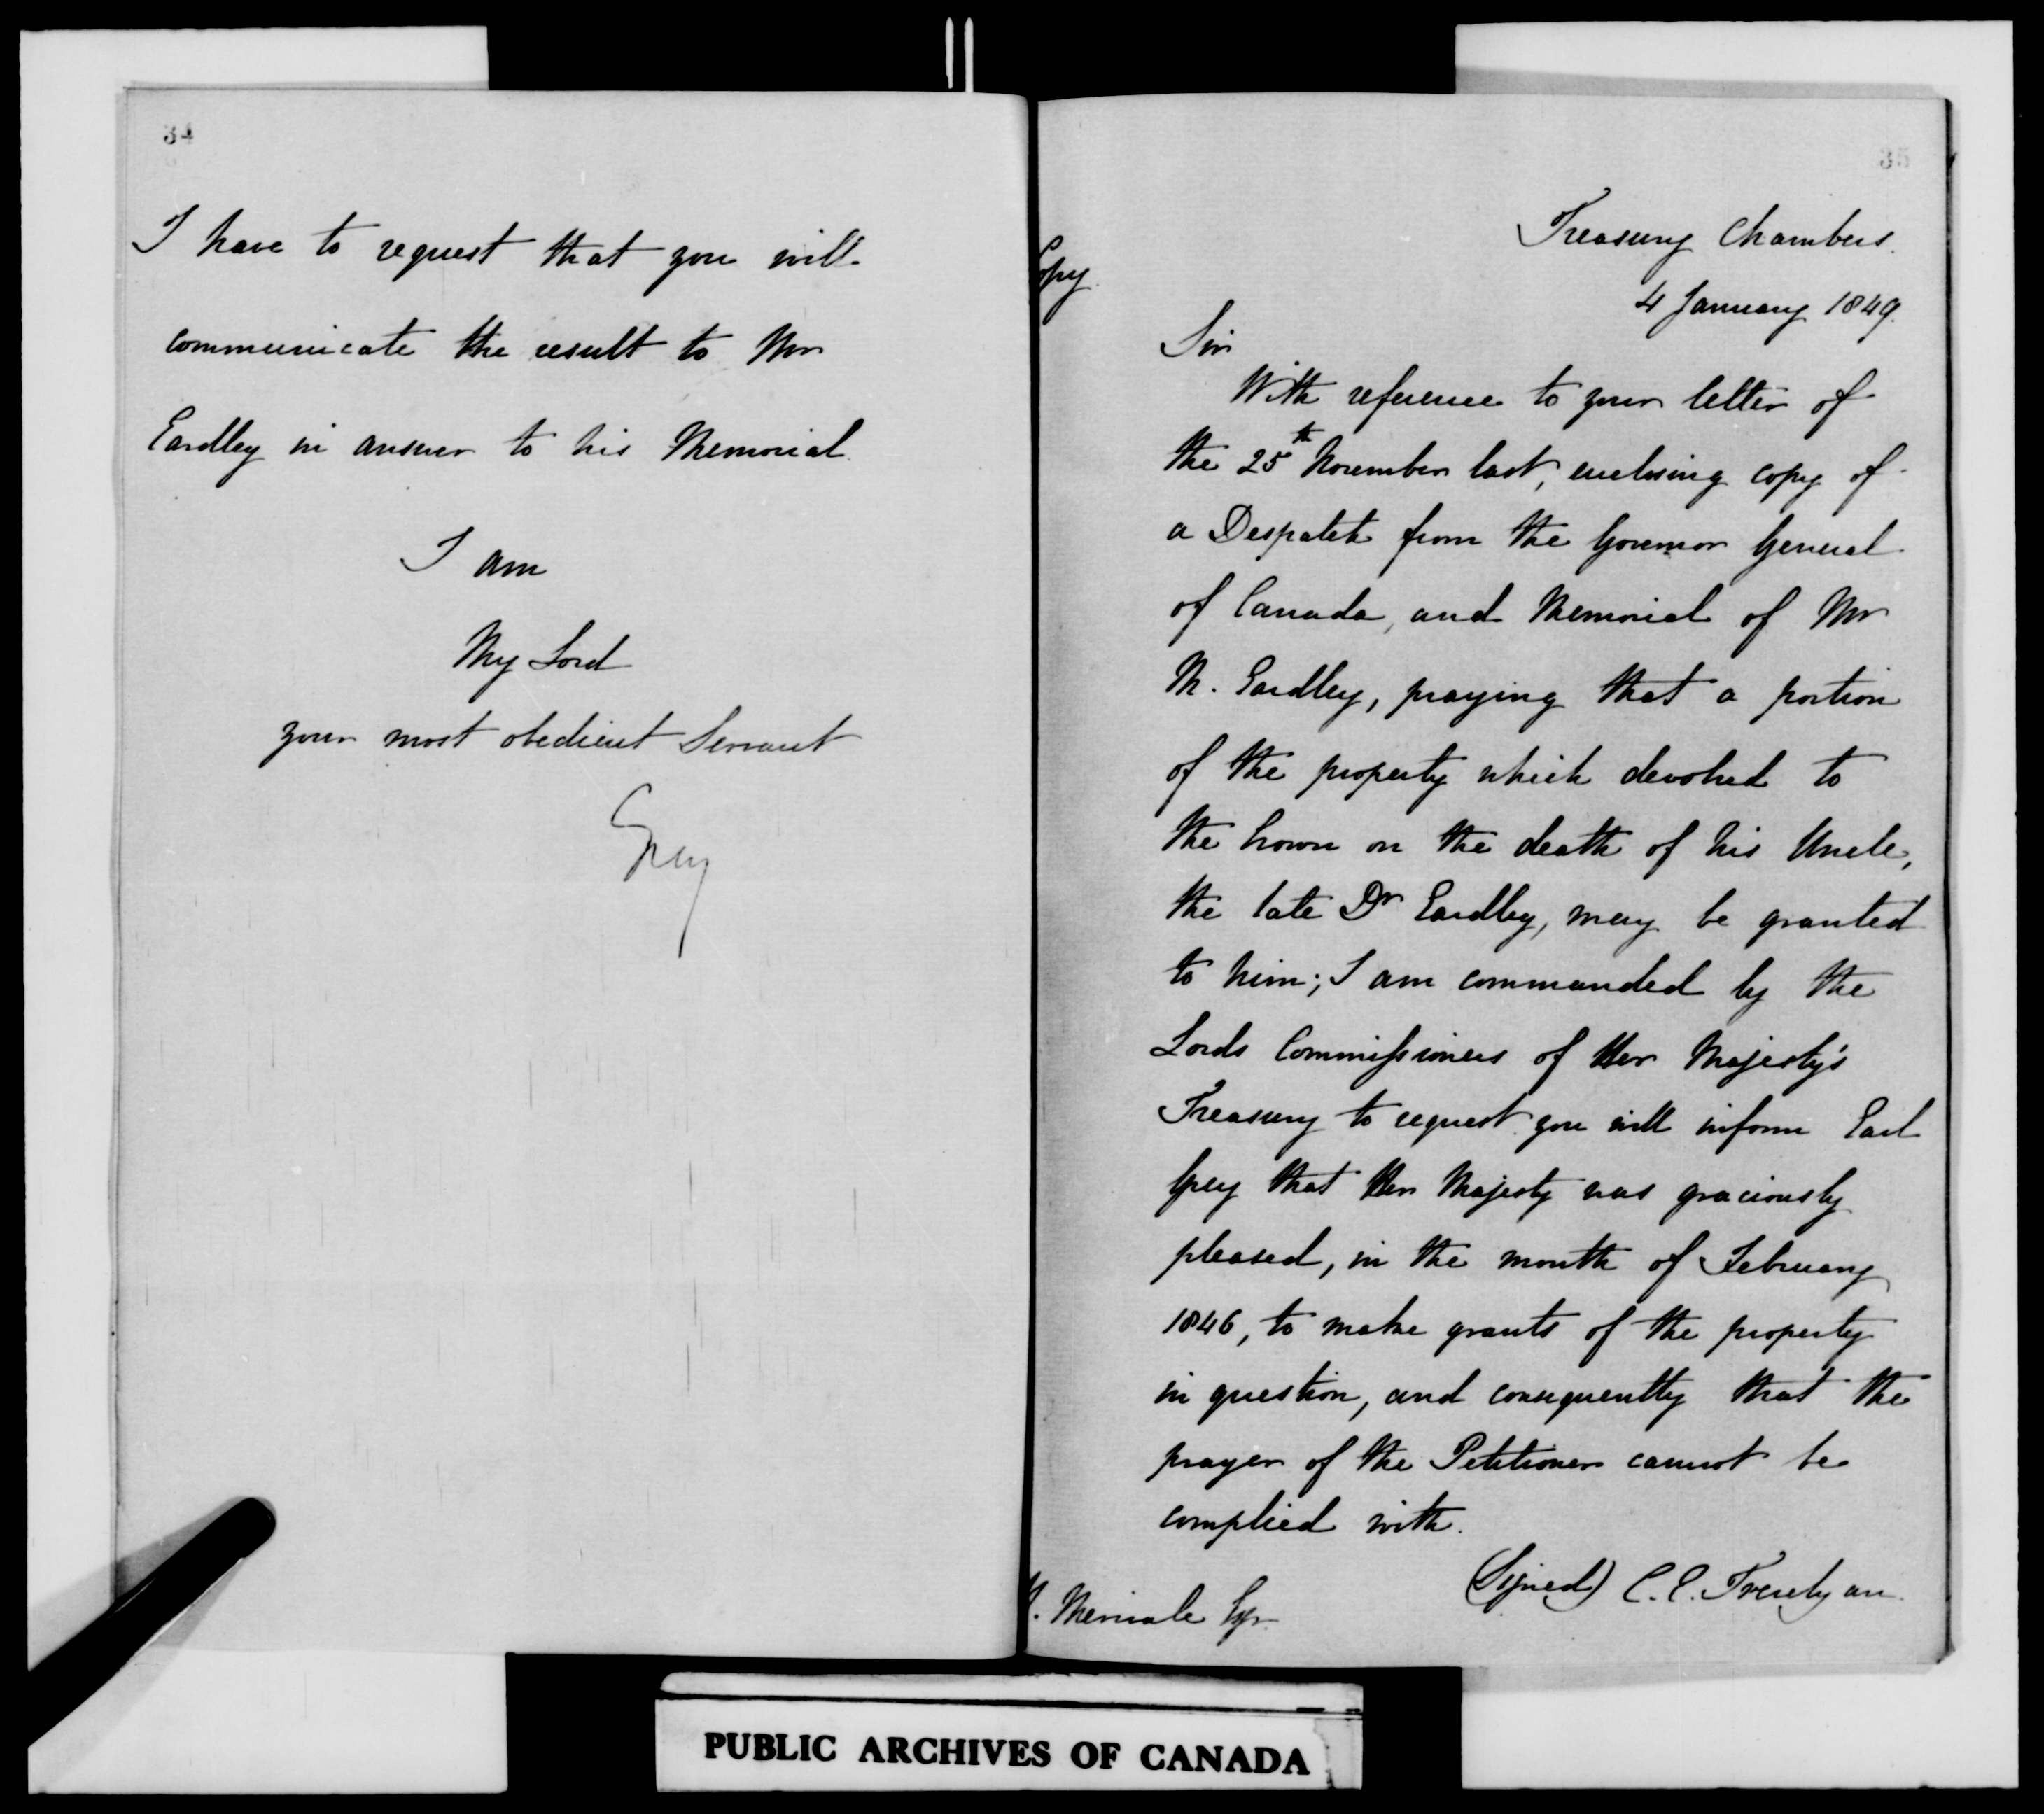 34
I have to request that you will
communicate the result to Mr
Eardley in answer to his Memorial.
I am
My Lord
your most obedient Servant
Grey
35
Copy.
Treasury Chambers.
4 January 1849.
Sir
With reference to your letter of
the 25th November last, enclosing copy of
a Despatch from the Governor General
of Canada, and Memorial of Mr
M. Eardley, praying that a portion
of the property which devolved to
the Crown on the death of his Uncle,
the late Dr Eardley, may be granted
to him; I am commanded by the
Lords Commissioners of Her Majesty's
Treasury to request you will inform Earl
Grey that Her Majesty was graciously
pleased, in the month of February
1846, to make grants of the property
in question, and consequently that the
prayer of the Petitioner cannot be
complied with.
(Signed) C. E. Trevelyan.
H. Merivale Esqr.
PUBLIC ARCHIVES OF CANADA